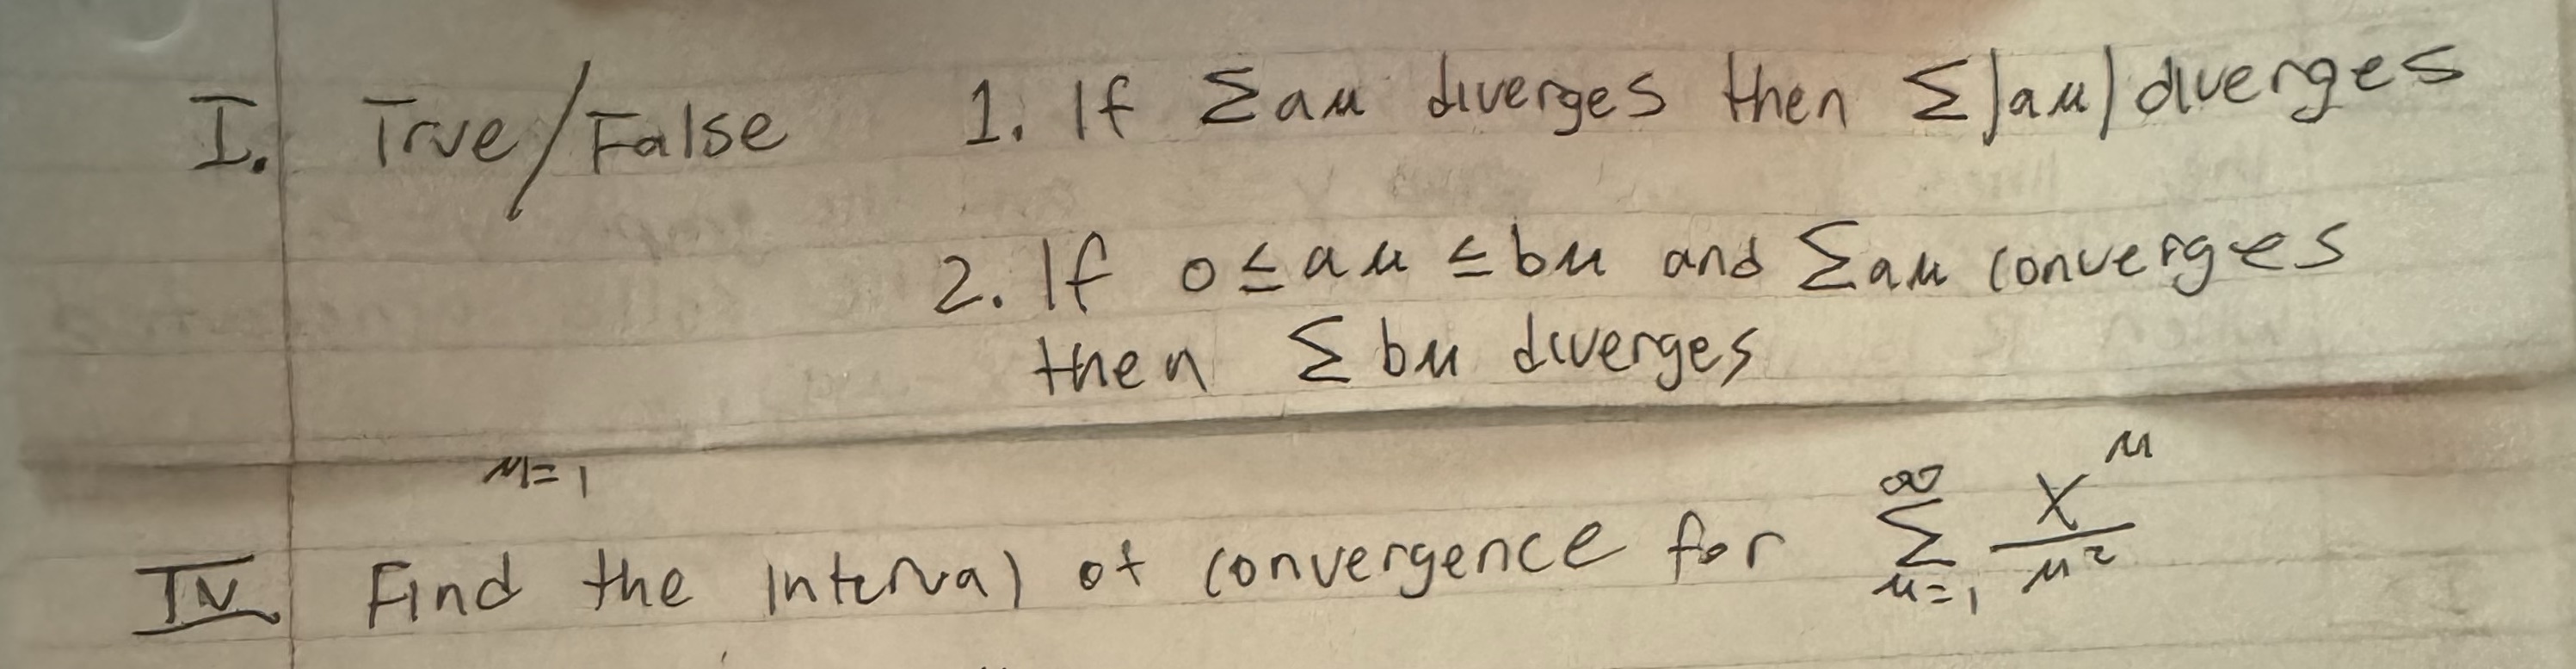 I. True/False 1. If Σan diverges then Σ|an| diverges
2. If 0≤an≤bn and Σan converges
then Σbn diverges
n=1
IV Find the interval of convergence for ∞Σn=1 xⁿ/n²